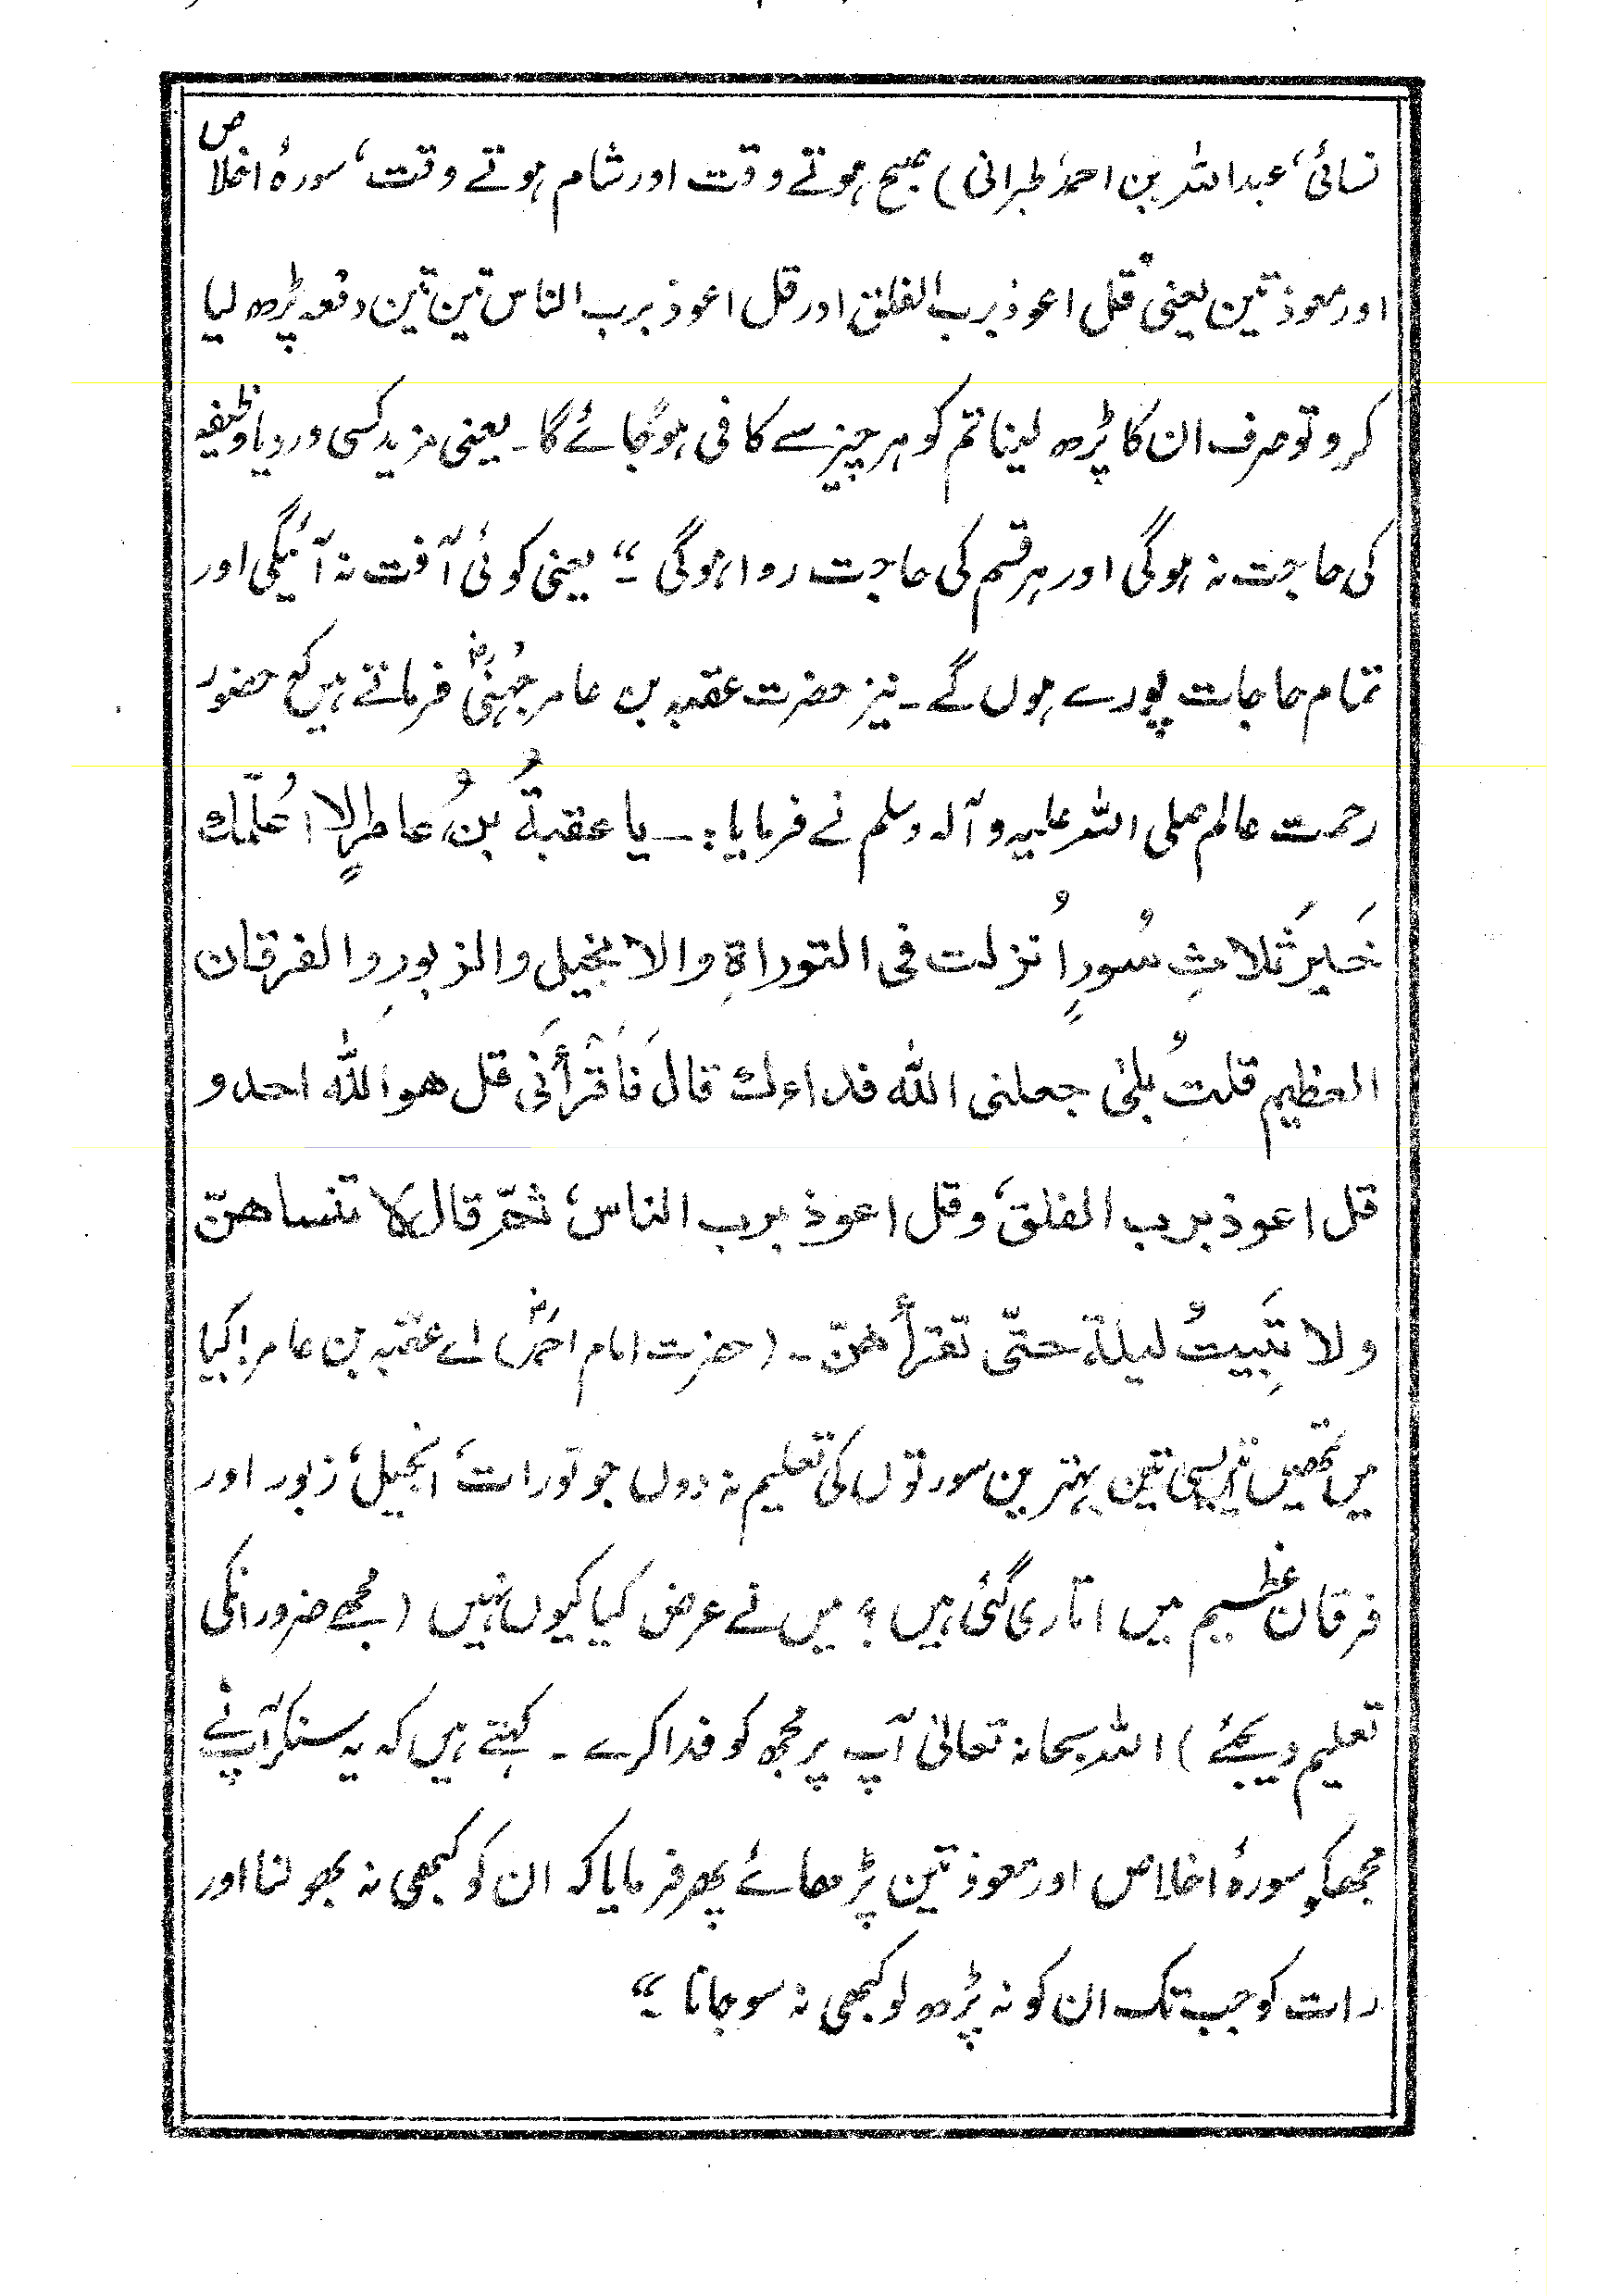 نسائی، عبداللہ بن احمد، طبرانی) صبح ہوتے وقت اور شام ہوتے وقت، سورۂ اخلاص
اور معوذتین یعنی قُل اعوذ برب الفلق اور قل اعوذ برب الناس تین تین دفعہ پڑھ لیا
کرو تو صرف ان کا پڑھ لینا تم کو ہر چیز سے کافی ہو جائے گا۔ یعنی مزید کسی ورد یا وظیفہ
کی حاجت نہ ہوگی اور ہر قسم کی حاجت روا ہوگی۔“ یعنی کوئی آفت نہ آئیگی اور
تمام حاجات پورے ہوں گے۔ نیز حضرت عقبہ بن عامر جُہنیؓ فرماتے ہیں کہ حضور
رحمت عالم صلی اللہ علیہ وآلہ وسلم نے فرمایا:۔ یا عقبةُ بنُ عامرٍ اِلا اُعَلّمك
خَیرَ ثَلاثِ سُورٍ اُنزلت فی التوراةِ والانجیلِ والزبورِ والفرقان
العظیم قلتُ بلیٰ جعلنی اللّٰه فداءك قالَ فَاَقْرَأَنی قل هو اللّٰه احد و
قل اعوذ برب الفلق، وقل اعوذ برب الناس، ثمّ قال لا تنساهنّ
ولا تَبِیتُ لیلة حتّی تقرأهُنّ۔ (حضرت امام احمدؒ) اے عقبہ بن عامر! کیا
میں تمھیں ایسی تین بہترین سورتوں کی تعلیم نہ دوں جو تورات، انجیل، زبور اور
فرقان عظیم میں اتاری گئی ہیں؟ میں نے عرض کیا کیوں نہیں (مجھے ضرور انکی
تعلیم دیجئے) اللہ سبحانہ تعالیٰ آپ پر مجھ کو فدا کرے۔ کہتے ہیں کہ یہ سنکر آپ نے
مجھکو سورۂ اخلاص اور معوذتین پڑھائے پھر فرمایا کہ ان کو کبھی نہ بھولنا اور
رات کو جب تک ان کو نہ پڑھ لو کبھی نہ سوجانا۔“